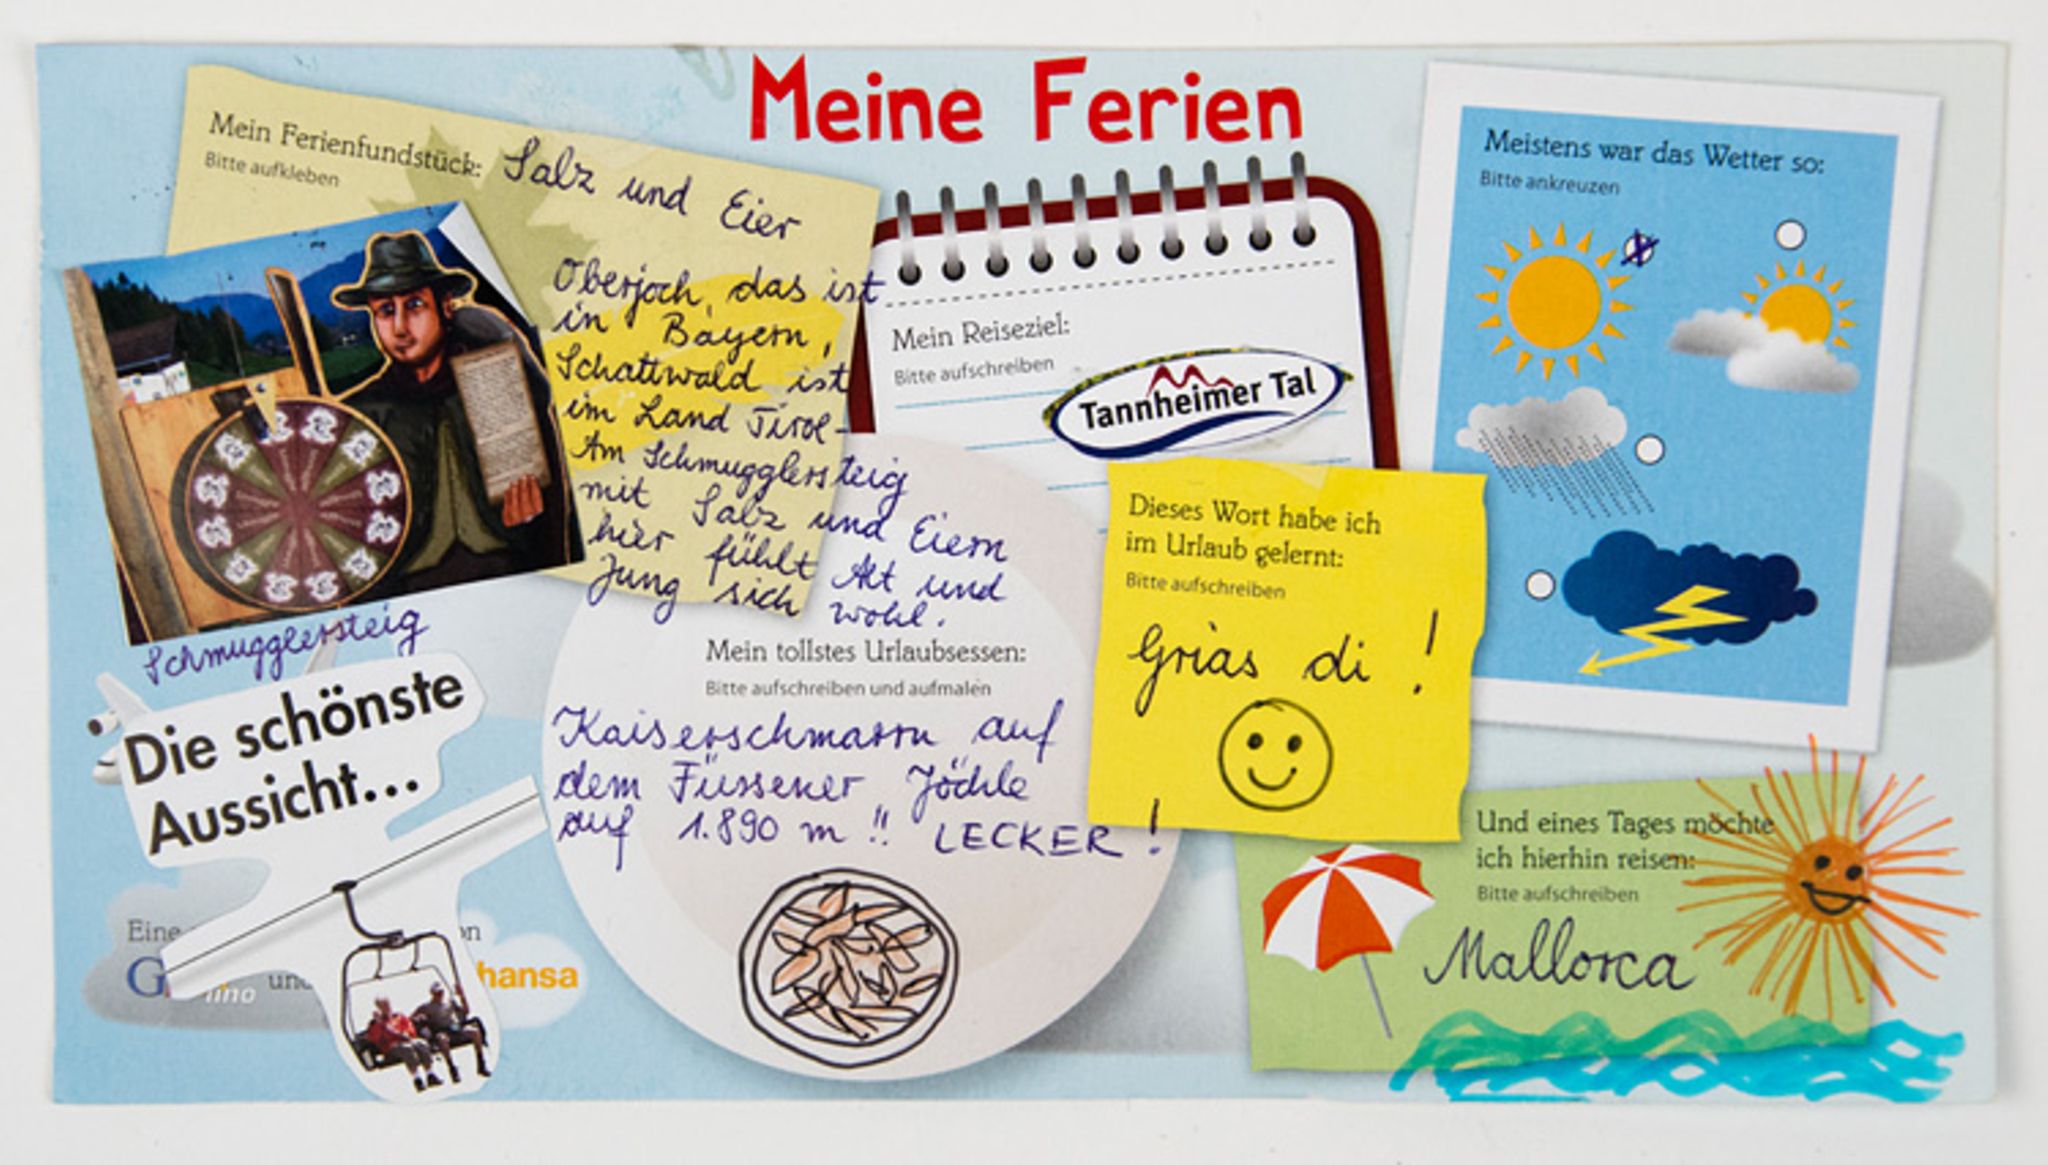 Meine Ferien
Mein Ferienfundstück: Salz und Eier
Bitte aufkleben
Oberjoch, das ist
in Bayern,
Schattwald ist
im Land Tirol-
Am Schmugglersteig
mit Salz und Eiern
hier fühlt Alt und
Jung sich wohl.
Schmugglersteig
Die schönste
Aussicht...
Eine
und
hansa
Mein Reiseziel:
Bitte aufschreiben
Tannheimer Tal
Mein tollstes Urlaubsessen:
Bitte aufschreiben und aufmalen
Kaiserschmarrn auf
dem Füssener Jöchle
auf 1.890 m !! LECKER !
Dieses Wort habe ich
im Urlaub gelernt:
Bitte aufschreiben
Grias di !
Meistens war das Wetter so:
Bitte ankreuzen
Und eines Tages möchte
ich hierhin reisen:
Bitte aufschreiben
Mallorca